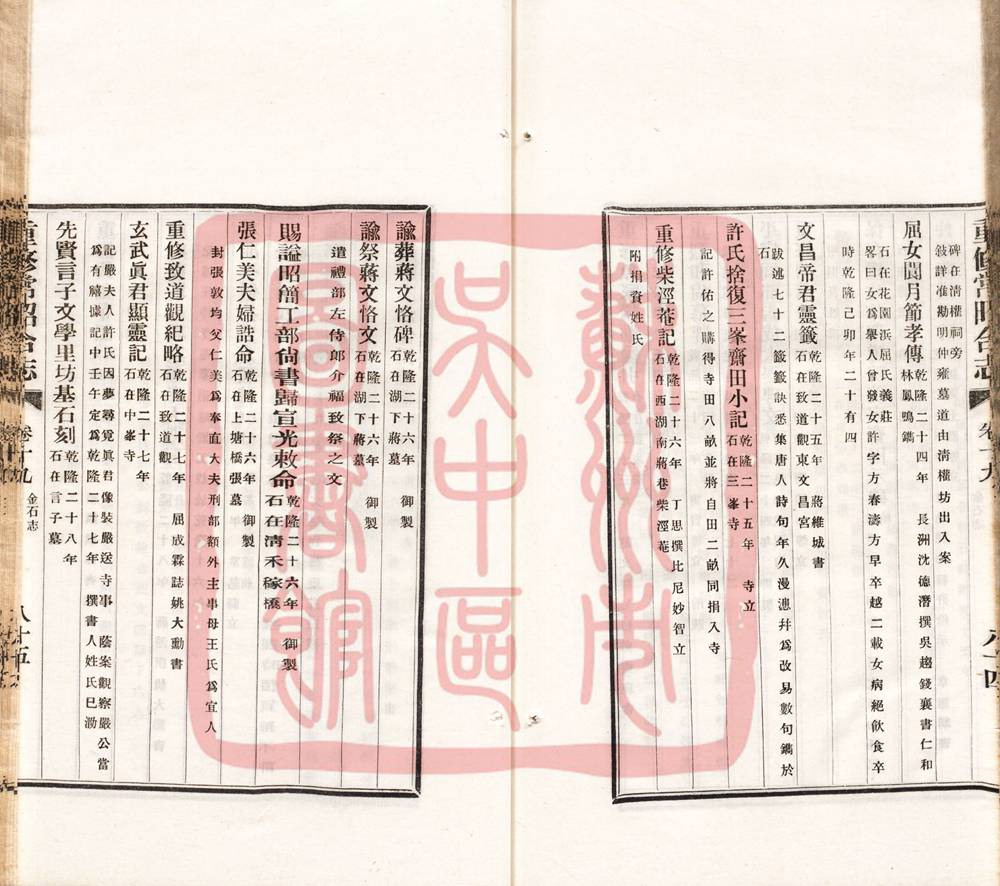 重修常昭合志 卷十九 八十四
碑在清權祠旁
敍詳准勘明仲雍墓道由清權坊出入案
屈女閏月節孝傳 乾隆二十四年 長洲沈德潛撰吳趨錢襄書仁和
林鳳鳴鐫
石在花園浜屈氏義莊
畧曰女為舉人曾發女許字方春濤方早卒越二載女病絕飲食卒
時乾隆己卯年二十有四
文昌帝君靈籤 乾隆二十五年 蔣維城書
石在致道觀東文昌宮
跋述七十二籤籤訣悉集唐人詩句年久漫漶幷為改易數句鐫於
石
許氏捨復三峯齋田小記 乾隆二十五年 寺立
石在三峯寺
記許佑之購得寺田八畝並將自田二畝同捐入寺
重修柴涇菴記 乾隆二十六年 丁思撰比尼妙智立
石在西湖南蔣巷柴涇菴
附捐資姓氏
諭葬蔣文恪碑 乾隆二十六年 御製
石在湖下蔣墓
諭祭蔣文恪文 乾隆二十六年 御製
石在湖下蔣墓
遣禮部左侍郎介福致祭之文
賜謚昭簡工部尙書歸宣光敕命 乾隆二十六年 御製
石在清禾稼橋
張仁美夫婦誥命 乾隆二十六年 御製
石在上塘橋張墓
封張敦均父仁美為奉直大夫刑部額外主事母王氏為宜人
重修致道觀紀略 乾隆二十七年 屈成霖誌姚大勳書
石在致道觀
玄武眞君顯靈記 乾隆二十七年
石在中峯寺
記嚴夫人許氏因夢尋覓眞君像裝嚴送寺事 蔭案觀察嚴公當
為有禧據記中壬午定為乾隆二十七年 撰書人姓氏已泐
先賢言子文學里坊基石刻 乾隆二十八年
石在言子墓
重修常昭合志 卷十九 金石志 八十五
蘇州市
吳中區
圖書館